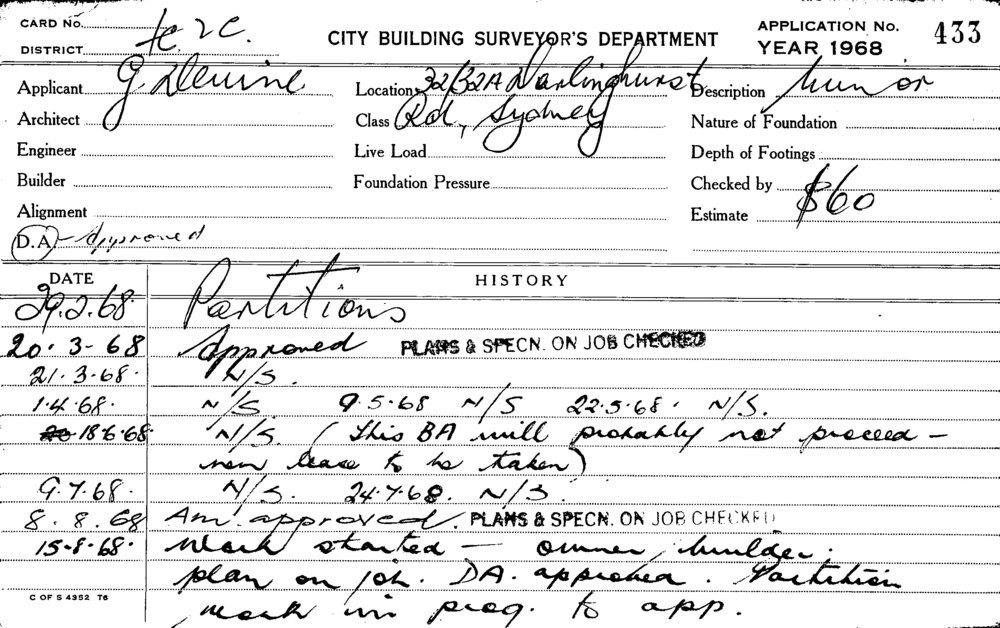 CARD No.
DISTRICT
CITY BUILDING SURVEYOR'S DEPARTMENT
APPLICATION No. 433
YEAR 1968
Applicant G. Devine
Location 32/32A Darlinghurst
Description Minor
Architect
Class Rd, Sydney
Nature of Foundation
Engineer
Live Load
Depth of Footings
Builder
Foundation Pressure
Checked by
Alignment
Estimate $60
D.A. - Approved
DATE HISTORY
29.2.68. Partitions
20.3-68 Approved PLANS & SPECN. ON JOB CHECKED
21.3.68. N/S.
1.4.68. N/S. 9.5.68 N/S 22.5.68. N/S.
18.6.68. N/S. (This BA will probably not proceed -
new lease to be taken)
9.7.68. N/S. 24.7.68. N/S.
8.8.68 Am. approved. PLANS & SPECN. ON JOB CHECKED
15.8.68. Work started - owner, builder.
plan on job. DA. approved. Partition
work in prog. to app.
C OF S 4352 T6